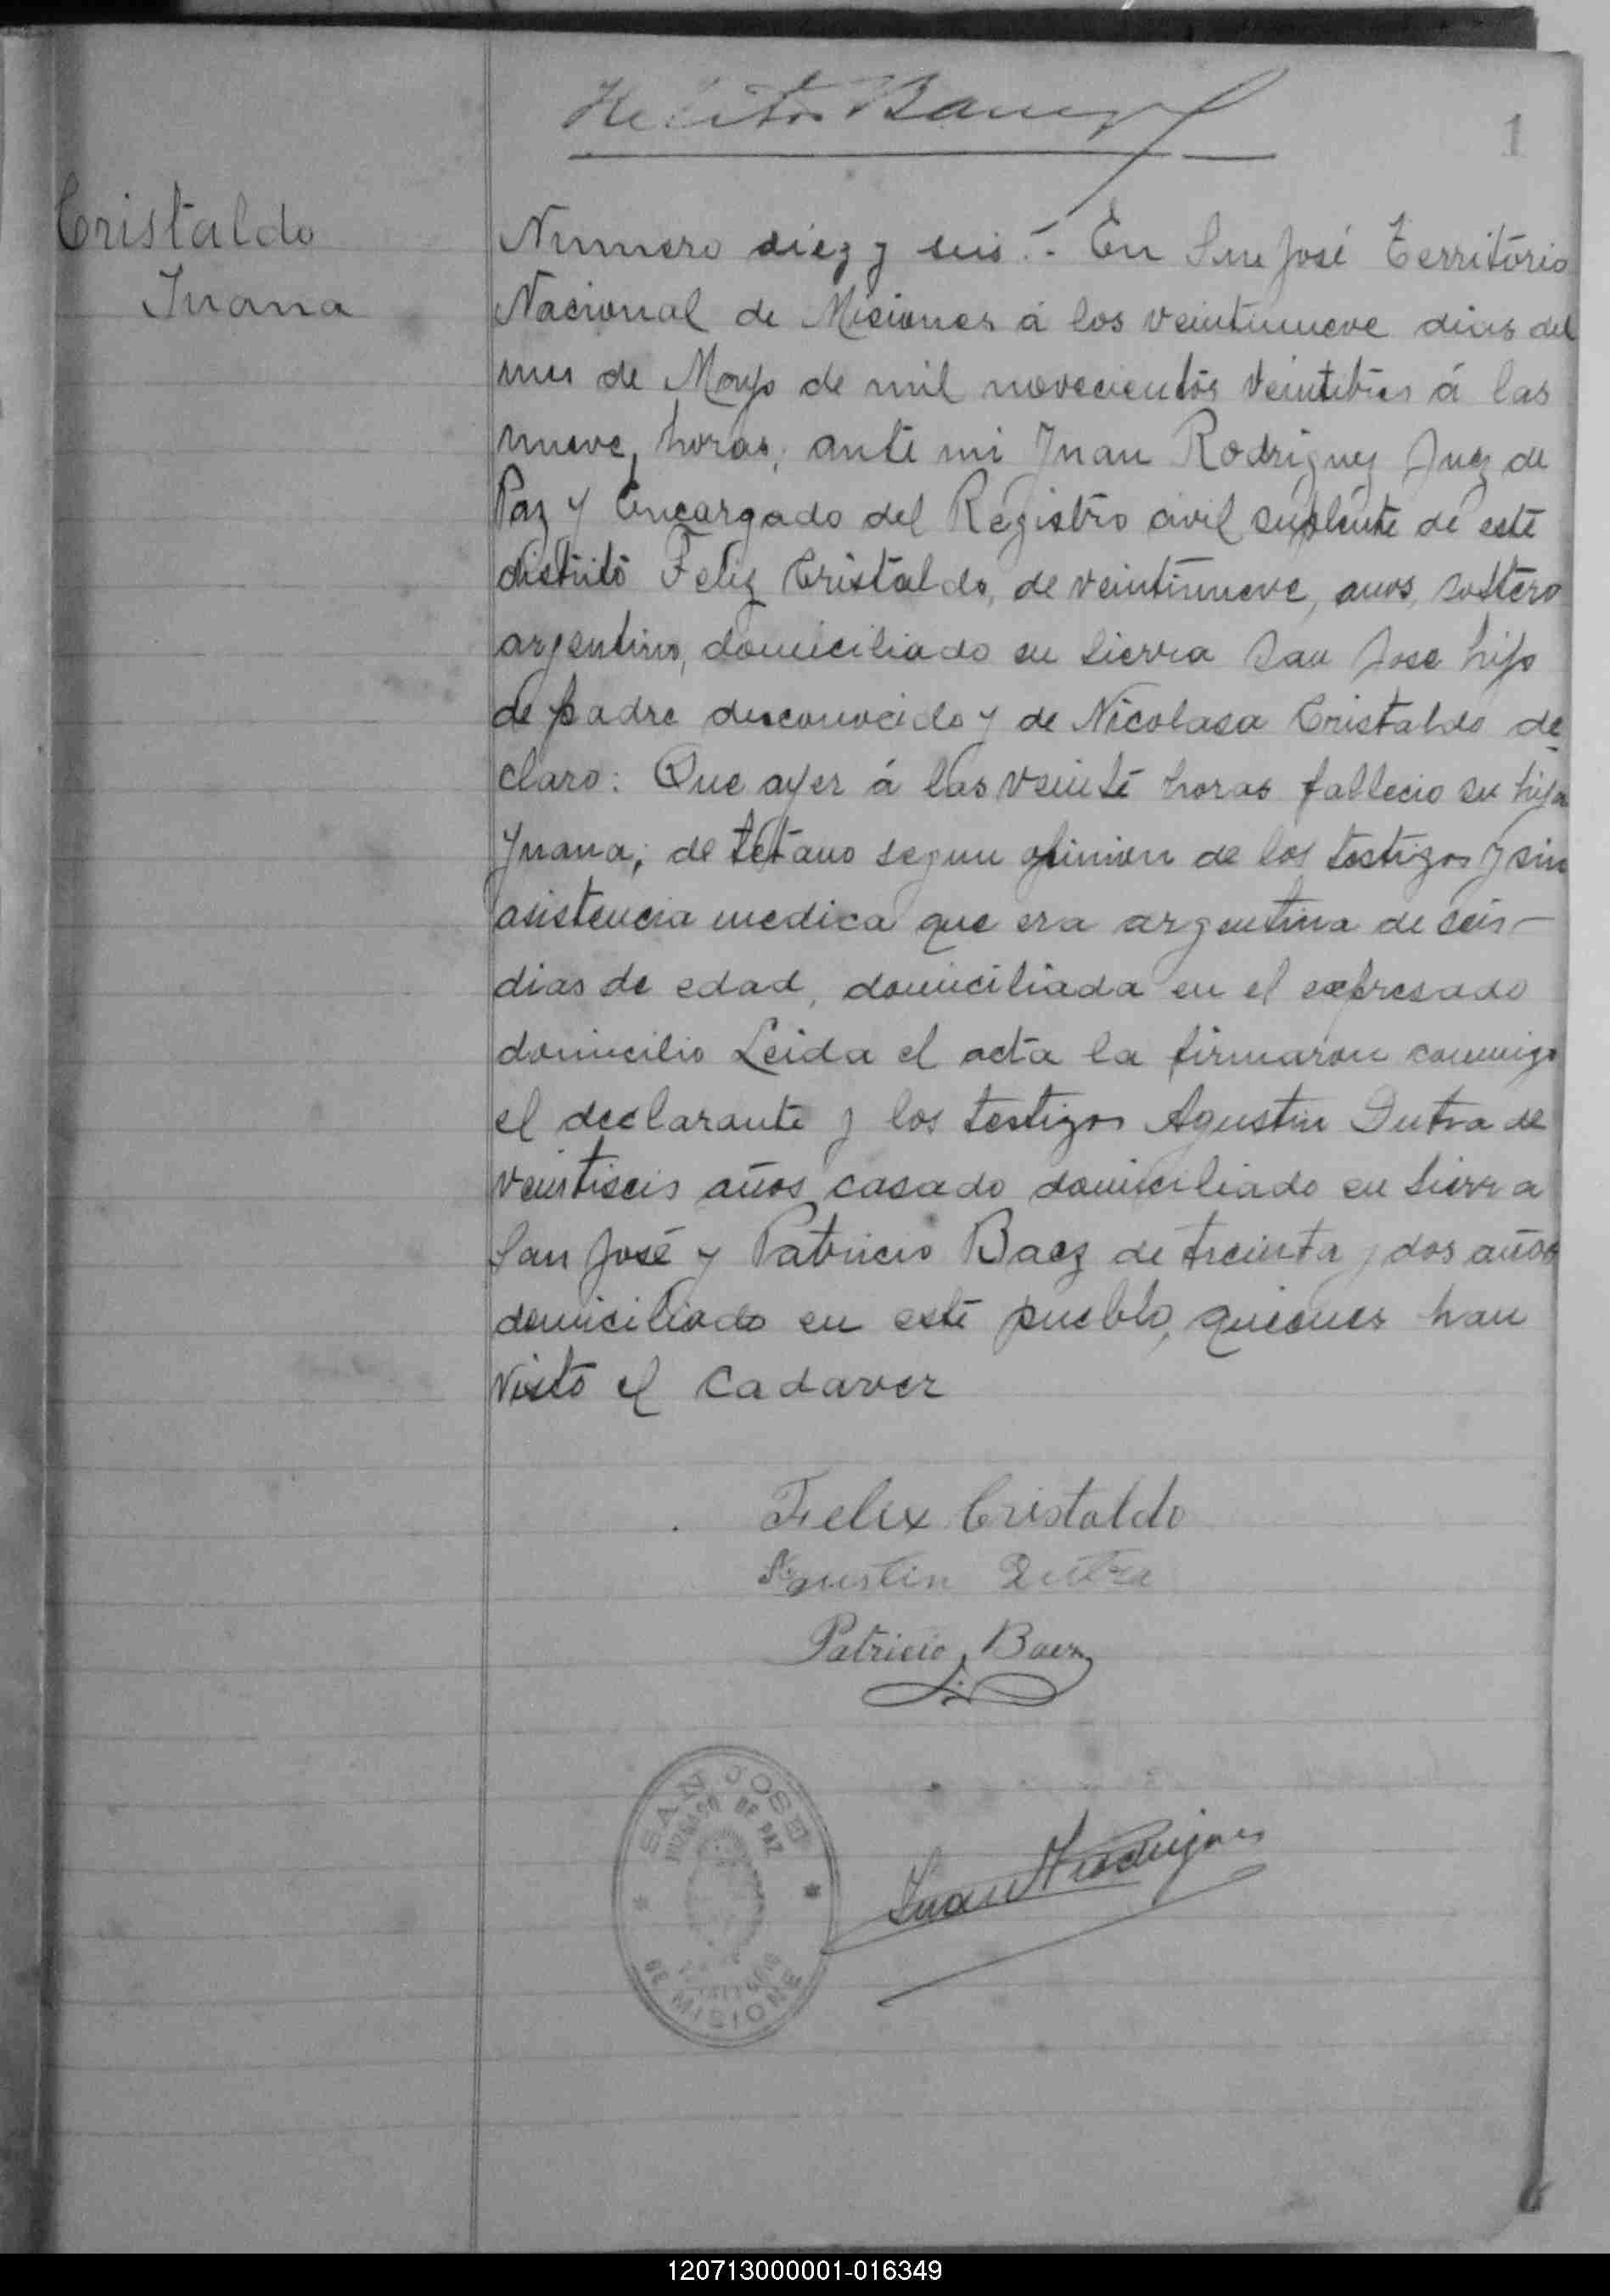 1
Cristaldo
Juana
Numero diez y seis.- En San José Territorio
Nacional de Misiones á los veintinueve dias del
mes de Mayo de mil novecientos veintitres á las
nueve, horas, ante mi Juan Rodriguez Juez de
Paz y Encargado del Registro civil suplente de este
distrito Feliz Cristaldo, de veintinueve, anos, soltero
argentino, domiciliado en Sierra San Jose hijo
de padre desconocido y de Nicolasa Cristaldo de-
claro: Que ayer á las veinte horas fallecio su hija
Juana; de tetano segun opinion de los testigos y sin
asistencia medica que era argentina de seis-
dias de edad, domiciliada en el expresado
domicilio Leida el acta la firmaron conmigo
el declarante y los testigos Agustin Dutra de
veintiseis años casado domiciliado en Sierra
San José y Patricio Baez de treinta y dos años
domiciliado en este pueblo, quienes han
visto el cadaver
Felix Cristaldo
Agustin Dutra
Patricio Baez
SAN JOSE
JUZGADO DE PAZ
DE MISIONES
Juan Rodriguez
120713000001-016349